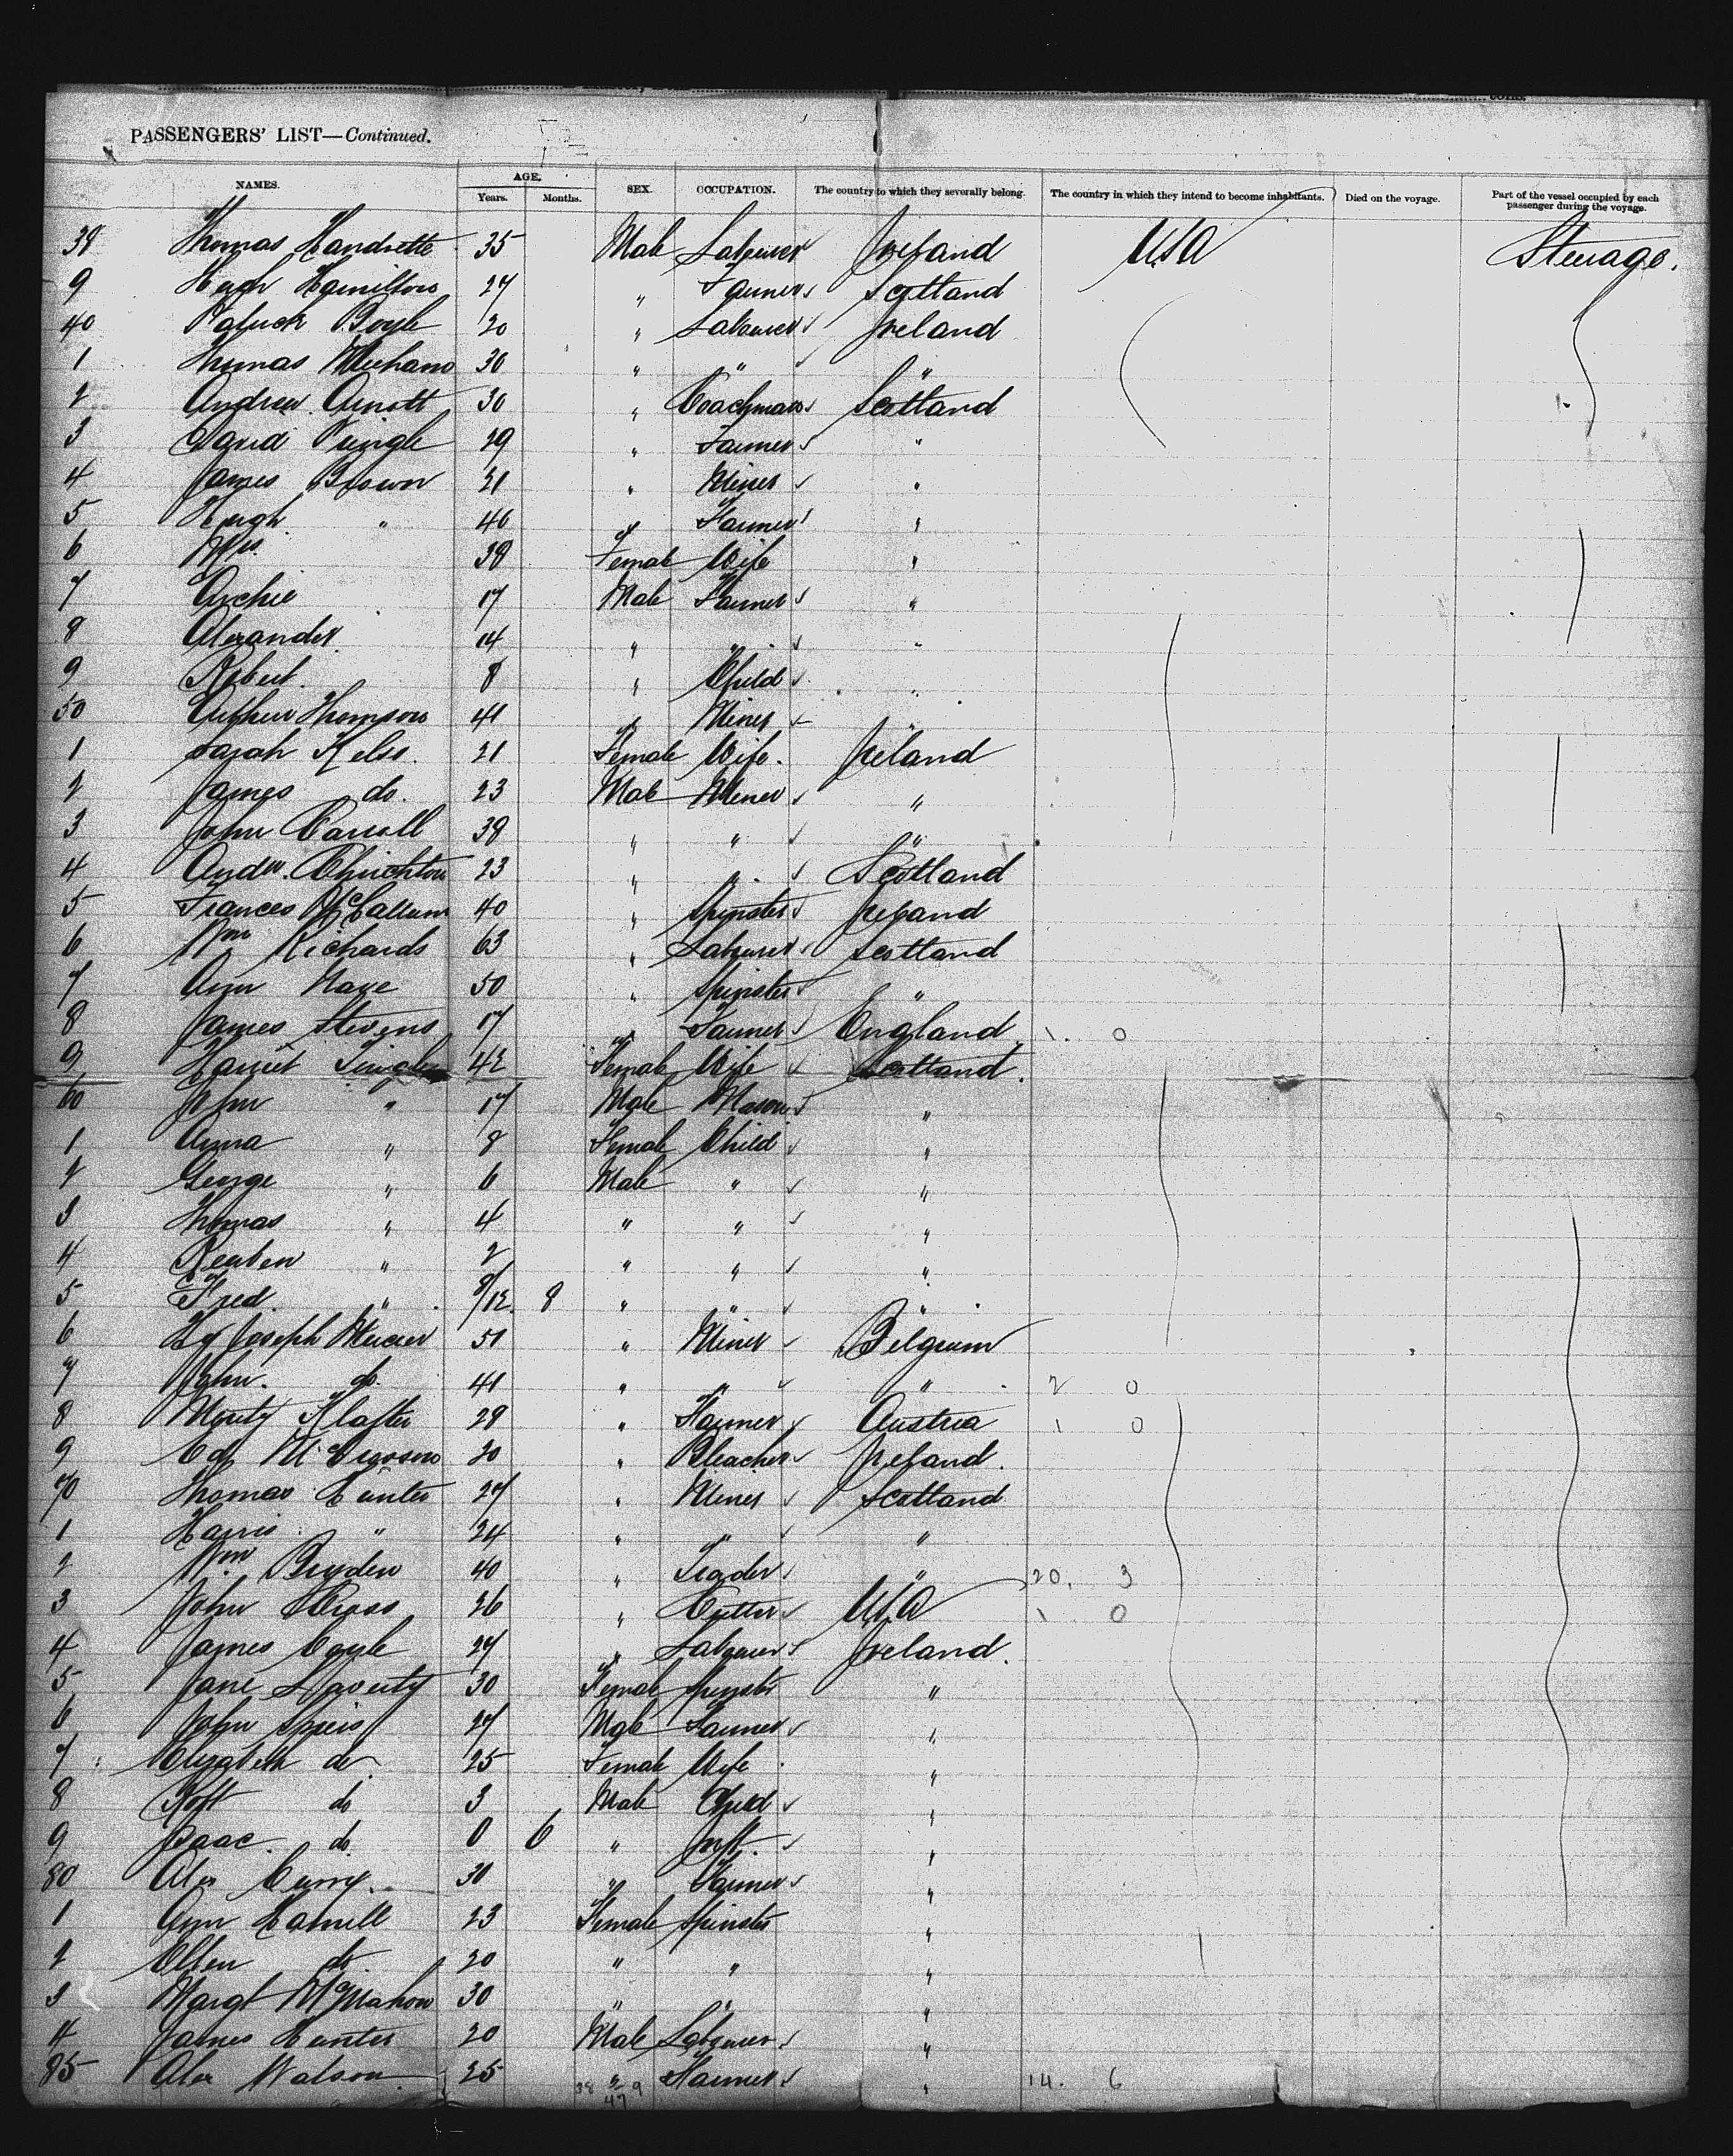 PASSENGERS' LIST—Continued.
NAMES. AGE. SEX. OCCUPATION. The country to which they severally belong. The country in which they intend to become inhabitants. Died on the voyage. Part of the vessel occupied by each passenger during the voyage.
Years. Months.
38 Thomas 35 Male Labourer Ireland USA Steerage.
9 Hugh Hamilton 27 " Farmer Scotland
40 Patrick Boyle 20 " Labourer Ireland
1 Thomas Meehan 30 " " "
2 Andrew Arnott 30 " Coachman Scotland
3 David Pringle 29 " Farmer "
4 James Brown 21 " Miner "
5 Hugh " 46 " Farmer "
6 Mrs. 38 Female Wife "
7 Archie 17 Male Farmer "
8 Alexander 14 " " "
9 Robert 8 " Child "
50 Arthur Thomson 41 " Miner "
1 Sarah Kelso. 21 Female Wife. Ireland
2 James do. 23 Male Miner "
3 John Carroll 38 " " "
4 Andw. Chrichton 23 " " Scotland
5 Frances McCallum 40 " Spinster Ireland
6 Wm Richards 63 " Labourer Scotland
7 Ann 50 " Spinster "
8 James Stevens 17 " Farmer England 1. 0
9 Harriet 42 Female Wife Scotland.
60 John " 17 Male Mason "
1 Anna " 8 Female Child "
2 George " 6 Male " "
3 Thomas " 4 " " "
4 Reuben " 2 " " "
5 Fred. " 8/12. 8 " " "
6 Hy Joseph Mercier 51 " Miner Belgium
7 John. do. 41 " " " 2 0
8 28 " Farmer Austria 1 0
9 20 " Bleacher Ireland.
70 Thomas Hunter 27 " Miner Scotland
1 Harris " 24 " " "
2 Wm. Bryden 40 " Trader " 20. 3
3 John 26 " Cutter USA 1 0
4 James Coyle 27 " Labourer Ireland.
5 Jane 30 Female Spinster "
6 John Speirs 27 Male Farmer "
7 Elizabeth do 25 Female Wife "
8 Robt do 3 Male Child "
9 Isaac. do. 0 6 " Inft. "
80 Alex Curry. 30 " Farmer "
1 Ann Hamill 23 Female Spinster "
2 Ellen do. 20 " " "
3 Margt McMahon 30 " " "
4 James Hunter 20 Male Labourer "
85 Alex Watson 25 " Farmer " 14. 6
38 9
47